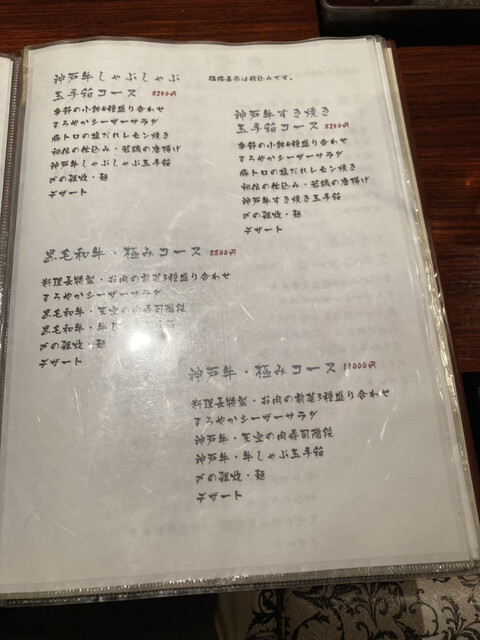 神戸牛しゃぶしゃぶ
玉手箱コース 8260円
季節の小鉢4種盛り合わせ
まろやかシーザーサラダ
豚トロの塩だれレモン焼き
秘伝の仕込み・若鶏の唐揚げ
神戸牛しゃぶしゃぶ玉手箱
〆の雑炊・麺
デザート
価格表示は税込みです。
神戸牛すき焼き
玉手箱コース 8260円
季節の小鉢4種盛り合わせ
まろやかシーザーサラダ
豚トロの塩だれレモン焼き
秘伝の仕込み・若鶏の唐揚げ
神戸牛すき焼き玉手箱
〆の雑炊・麺
デザート
黒毛和牛・極みコース 8800円
料理長特製・お肉の前菜3種盛り合わせ
まろやかシーザーサラダ
黒毛和牛・天空の肉寿司階段
黒毛和牛・牛し
〆の雑炊・麺
デザート
神戸牛・極みコース 11000円
料理長特製・お肉の前菜3種盛り合わせ
まろやかシーザーサラダ
神戸牛・天空の肉寿司階段
神戸牛・牛しゃぶ玉手箱
〆の雑炊・麺
デザート